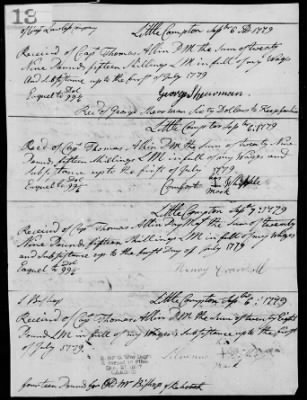 13
Little Compton Septr 6th 1779
Receivd of Capt Thomas Allin D M the Sum of twenty
Nine Pounds fifteen Shillings L M in full of my Wages
And Subsistance up to the first of July 1779
Equel to 99¼ Dol
George Shearman
Recd of George Shearman Six ty Dollars to
Little Compton Septr 6: 1779
Recd of Capt Thomas Allin D M the Sum of Twenty Nine
Pounds fifteen Shillings L M in full of my Wages and
Subsistance up to the first of July 1779
Equel to 99¼ Dol
Comfort X Ripple
mark
Little Compton Septr 7: 1779
Receivd of Capt Thomas Allin Day M the Sum of twenty
Nine Pounds fifteen Shillings L M in full of my Wages
and Subsistance up to the first Day of July 1779
Equel to 99¼
Henry
Little Compton Septr 6: 1779
Receivd of Capt Thomas Allin D M the Sum of twenty Eight
Pound L M in full of my Wages & Subsistance up to the first
of July 1779.
mark
fourteen Pound for